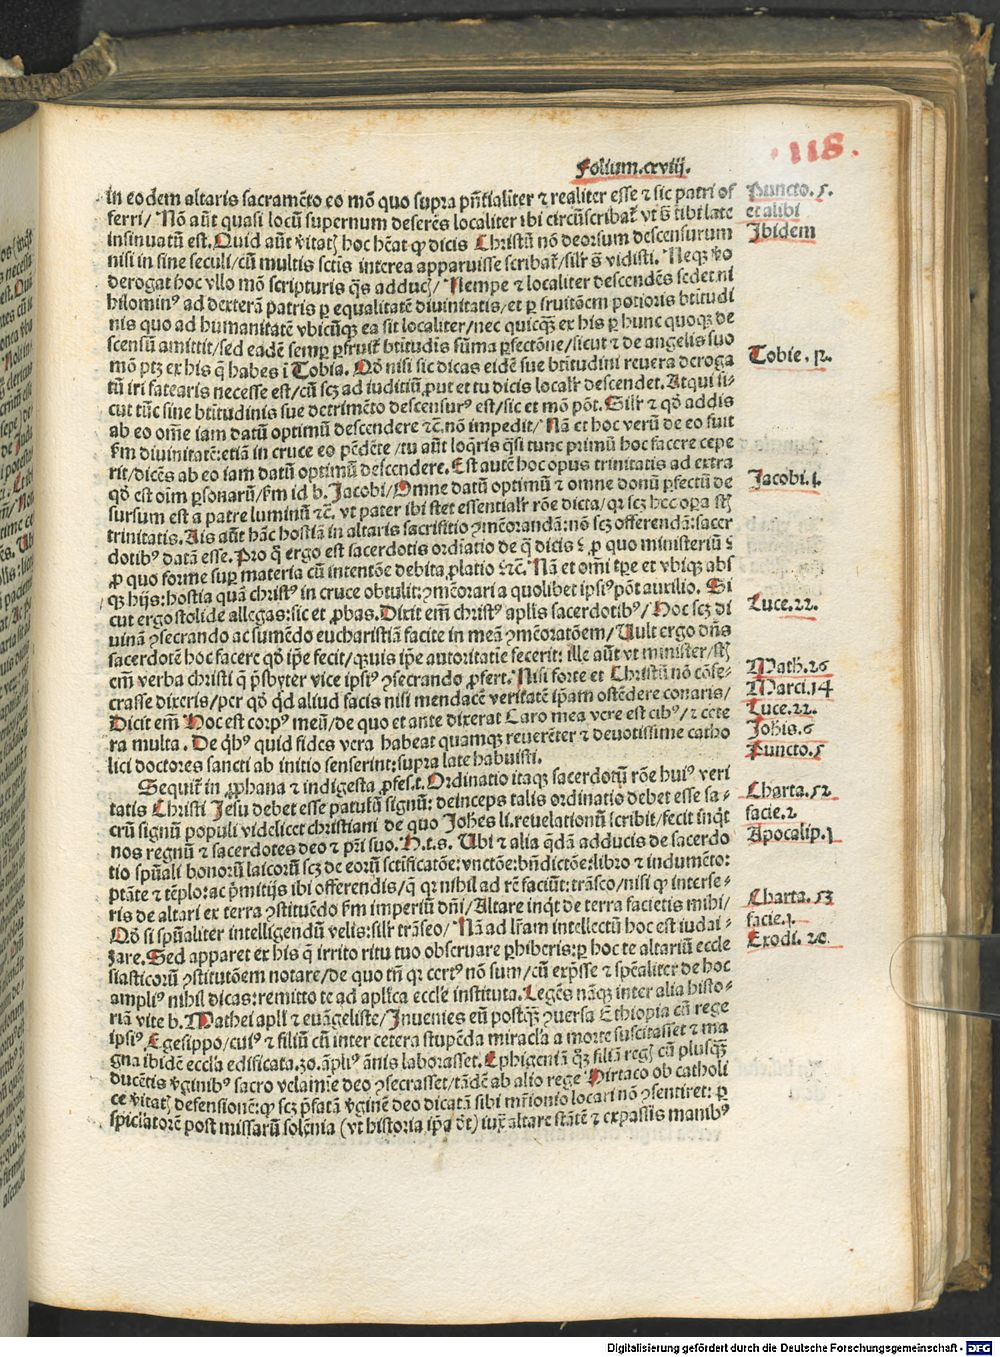 118.
Folium.cxviij.
in eodem altaris sacramēto eo mō quo supra pn̄tialiter ⁊ realiter esse ⁊ sic patri of
ferri/ Nō aūt quasi locū supernum deserēs localiter ibi circūscribat̄ vt ṡ tibi late
insinuatū est. Quid aūt v̇itatꝭ hoc hēat ꝙ dicis Christū nō deorsum descensurum
nisi in fine seculi/ cū multis sctīs interea apparuisse scribat̄/ silr̄ ṡ vidisti. Neqꝫ v̇o
derogat hoc vllo mō scripturis q̄s adducꝭ/ Nempe ⁊ localiter descendēs sedet ni
hilominꝰ ad dexterā patris ꝑ equalitatē diuinitatis/ et ꝑ fruitōem potioris btītudi
nis quo ad humanitatē vbicūqꝫ ea sit localiter/ nec quicqꝫ̄ ex his ꝑ hunc quoqꝫ de
scensū amittit/ sed eadē semꝑ ꝑfruit̄ btītudīs sūma ꝑfectōne/ sicut ⁊ de angelis suo
mō ptꝫ ex his q̄ habes ī Tobia. Qō nisi sic dicas eidē sue btītudini reuera deroga
tū iri fatearis necesse est/ cū scꝫ ad iuditiū ꝓut et tu dicis localr̄ descendet. Atqui si
cut tūc sine btītudinis sue detrimēto descensurꝰ est/ sic et mō pōt. Silr̄ ⁊ qō addis
ab eo om̄e iam datū optimū descendere ⁊c̄. nō impedit/ Nā et hoc verū de eo fuit
ẜm diuinitatē: etiā in cruce eo pēdēte/ tu aūt loq̄ris q̄si tunc primū hoc facere cepe
rit/ dicēs ab eo iam datū optimū descendere. Est autē hoc opus trinitatis ad extra
qō est oīm ꝑsonarū/ ẜm id b. Jacobi/ Omne datū optimū ⁊ omne donū ꝑfectū de
sursum est a patre luminū ⁊c̄. vt pater ibi stet essentialr̄ rōe dicta/ qꝛ scꝫ hec oꝑa st̄ꝭ
trinitatis. Ais aūt hāc hostiā in altaris sacrifitio ꝯmēorandā: nō scꝫ offerendā: sacer
dotibꝰ datā esse. Pro q̄ ergo est sacerdotis ordīatio de q̄ dicis
ꝓ quo forme suꝑ materia cū intentōe debita ꝓlatio Nā et omī tꝑe et vbiqꝫ abs
qꝫ hijs: hostia quā christꝰ in cruce obtulit: ꝯmēorari a quolibet ipsiꝰ pōt auxilio. Si
cut ergo stolide allegas: sic et ꝓbas. Dixit em̄ christꝰ apl̄is sacerdotibꝰ/ Hoc scꝫ di
uinā ꝯsecrando ac sumēdo eucharistiā facite in meā ꝯmēoratōem/ Vult ergo dn̄s
sacerdotē hoc facere qō ip̄e fecit/ quis ip̄e autoritatīe fecerit: ille aūt vt minister/
em̄ verba christi q̄ p̄sbyter vice ipsiꝰ ꝯsecrando ꝓfert. Nisi forte et Christū nō cōse-
crasse dixeris/ per qō q̇d aliud facis nisi mendacē veritatē ip̄am ostēdere conaris/
Dicit em̄ Hoc est corpꝰ meū/ de quo et ante dixerat Caro mea vere est cibꝰ/ ⁊ cete
ra multa. De q̇bꝰ quid fides vera habeat quamqꝫ reuerēter ⁊ deuotissime catho
lici doctores sancti ab initio senserint: supra late habuisti.
Sequit̄ in ꝓphana ⁊ indigesta ꝓfes.t. Ordinatio itaqꝫ sacerdotū rōe huiꝰ veri
tatis Christi Jesu debet esse patutū signū: deinceps talis ordinatio debet esse sa-
crū signū populi videlicet christiani de quo Joh̄es li. reuelationū scribit/ fecit inq̇t
nos regnū ⁊ sacerdotes deo ⁊ pr̄i suo. H.t.s. Ubi ⁊ alia q̄dā adducis de sacerdo
tio spūali bonorū laicorū scꝫ de eorū sctīficatōe: vnctōe: bn̄dictōe: libro ⁊ indumēto:
ptāte ⁊ tēplo: ac p̄mitijs ibi offerendis/ q̄ qꝛ nihil ad rē faciūt: trāseo/ nisi ꝙ interse-
ris de altari ex terra ꝯstituēdo ẜm imperiū dn̄i/ Altare inq̇t de terra facietis mihi/
Qō si spūaliter intelligendū velis: silr̄ trāseo/ Nā ad lr̄am intellectū hoc est iudai-
zare. Sed apparet ex his q̄ irrito ritu tuo obseruare ꝓhibcris: ꝑ hoc te altariū eccle
siasticorū ꝯstitutōem notare/ de quo tn̄ qꝛ certꝰ nō sum/ cū exp̄sse ⁊ spēaliter de hoc
ampliꝰ nihil dicas: remitto te ad apl̄ica eccl̄ie instituta. Legēs nāqꝫ inter alia histo-
riā vite b. Mathei apl̄i ⁊ euāgeliste/ Inuenies eū postqꝫ̄ ꝯuersa Ethiopia cū rege
ipsiꝰ Egesippo/ cuiꝰ ⁊ filiū cū inter cetera stupēda miracl̄a a morte suscitasset ⁊ ma
gna ibidē eccl̄a edificata. 30. āpliꝰ ānis laborasset. Ephigeniā q̄ꝫ filiā regꝭ cū plusqꝫ̄
ducētis v̇ginibꝰ sacro velamīe deo ꝯsecrasset/ tādē ab alio rege Hirtaco ob catholi
ce v̇itatꝭ defensionē: ꝙ scꝫ p̄fatā v̇ginē deo dicatā sibi mr̄ionio locari nō ꝯsentiret: ꝑ
spicl̄atorē post missarū solēnia (vt historia ip̄a dt̄) iux̄ altare stātē ⁊ expassis manibꝰ
Puncto. 5.
et alibi
Ibidem
Tobie. 12.
Jacobi. 1.
Luce. 22.
Math. 26
Marci. 14
Luce. 22.
Joh̄is. 6
Puncto. 5
Charta. 52
facie. 2
Apocalip. 1
Charta. 53
facie. 1.
Exodi. 20.
Digitalisierung gefördert durch die Deutsche Forschungsgemeinschaft - DFG